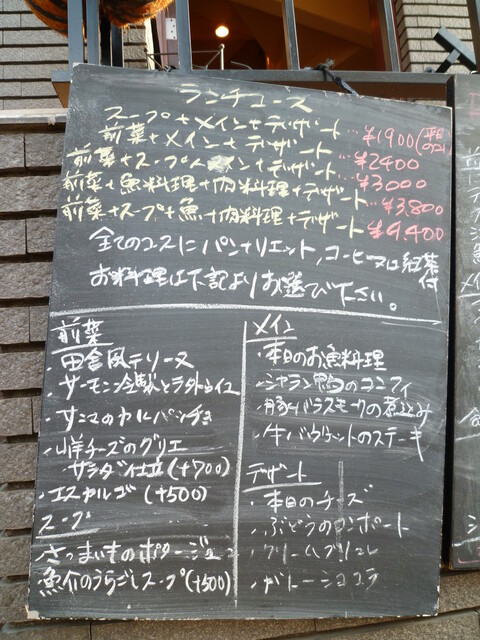 ランチコース
スープ+メイン+デザート…¥1900(平日のみ)
前菜+メイン+デザート…¥2400
前菜+スープ+メイン+デザート…¥3000
前菜+魚料理+肉料理+デザート…¥3,800
前菜+スープ+魚+肉料理+デザート…¥4,400
全てのコースにパンナリエット,コーヒー又は紅茶付
お料理は下記よりお選び下さい。
前菜
・田舎風テリーヌ
・サーモン冷製とラタトゥイユ
・サンマのカルパッチョ
・山羊チーズのグリエ
サラダ仕立(+700)
・エスカルゴ(+500)
スープ
・さつまいものポタージュ
魚介のうらごしスープ(+500)
メイン
・本日のお魚料理
・シャラン鴨のコンフィ
・豚バラスモークの煮込み
・牛バヴェットのステーキ
デザート
・本日のチーズ
・ぶどうのコンポート
・クリームブリュレ
・ガトーショコラ